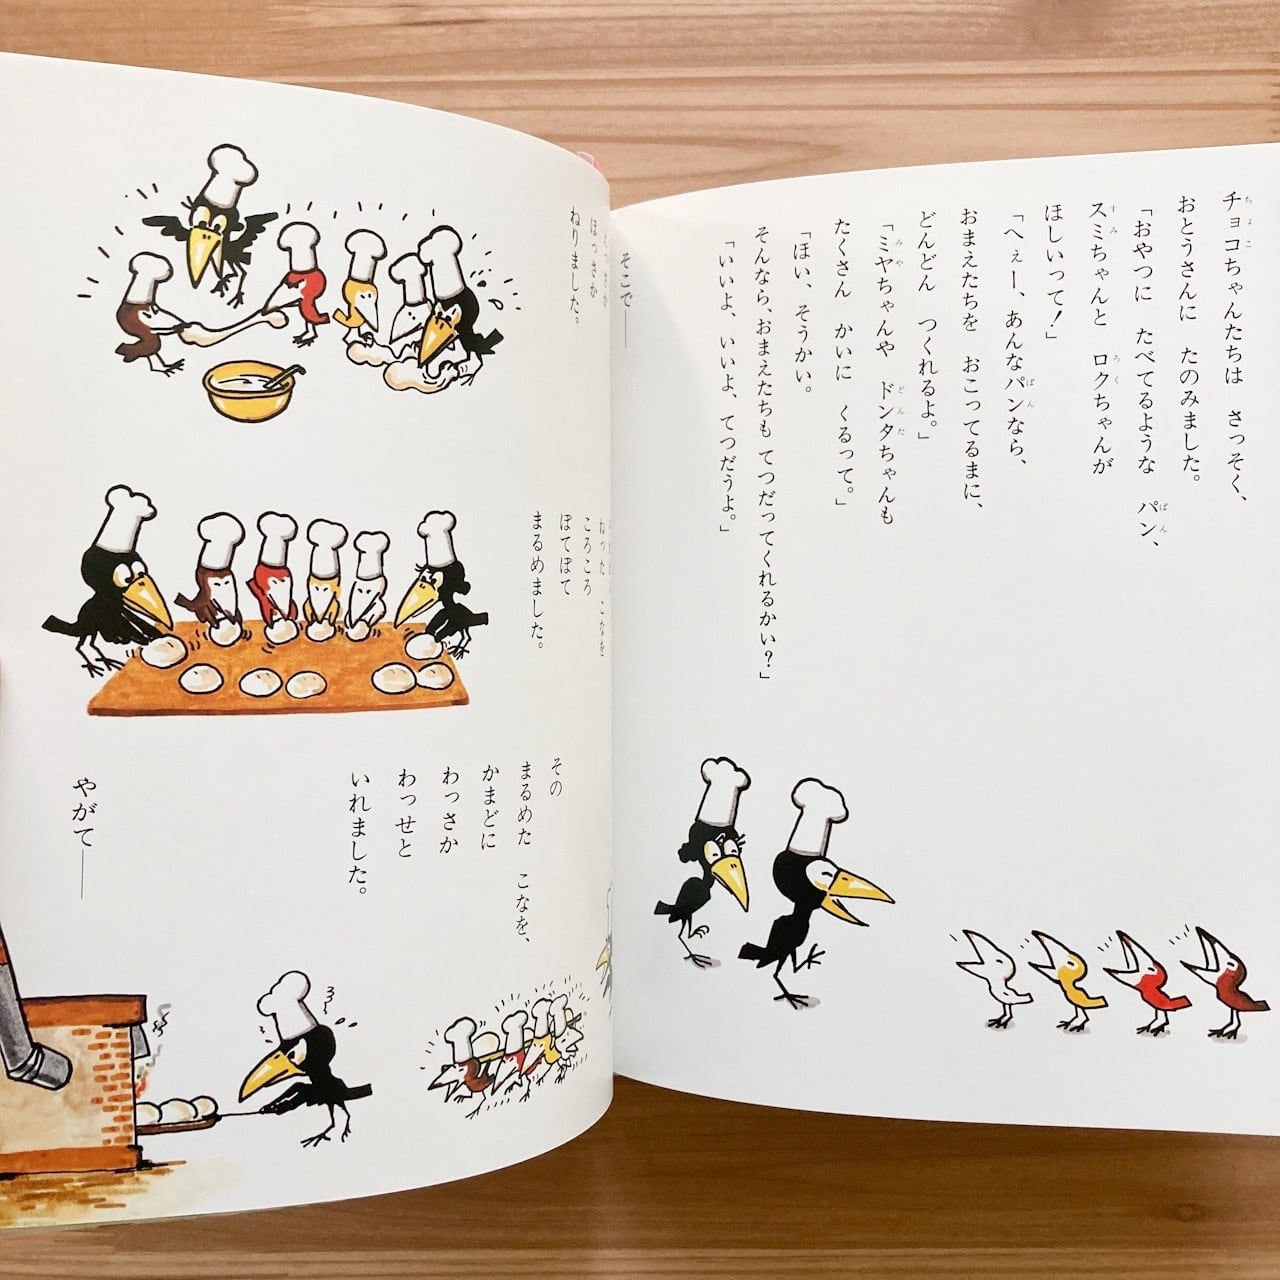 チョコちゃんたちは さっそく、
おとうさんに たのみました。
「おやつに たべてるような パン、
スミちゃんと ロクちゃんが
ほしいって!」
「へぇー、あんなパンなら、
おまえたちを おこってるまに、
どんどん つくれるよ。」
「ミヤちゃんや ドンタちゃんも
たくさん かいに くるって。」
「ほい、そうかい。
そんなら、おまえたちも てつだってくれるかい?」
「いいよ、いいよ、てつだうよ。」
そこで──
ほっさか
ねりました。
ねった こなを
ころころ
ぽてぽて
まるめました。
その
まるめた こなを、
かまどに
わっさか
わっせと
いれました。
やがて──